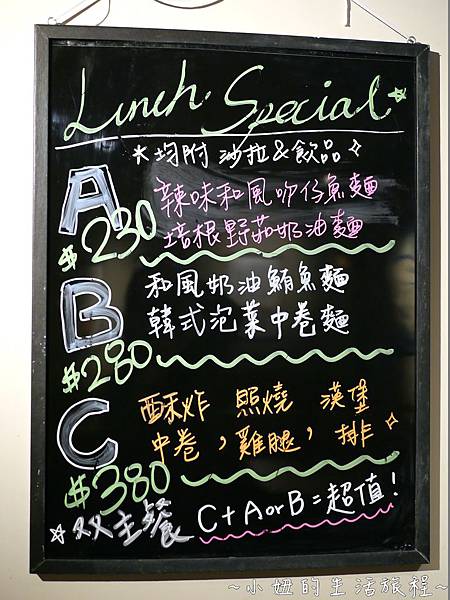 Lunch Special
*均附 沙拉&飲品
A
辣味和風吻仔魚麵
$230
培根野菇奶油麵
B
和風奶油鮪魚麵
韓式泡菜中卷麵
$280
C
酥炸 照燒 漢堡
中卷，雞腿，排
$380
双主餐 C+AorB=超值!
~小妞的生活旅程~